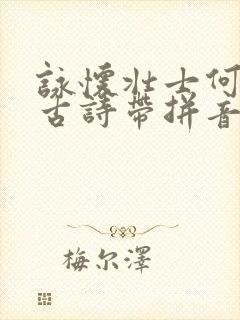 詠懷壯士何
古詩帶拼音
梅尔澤